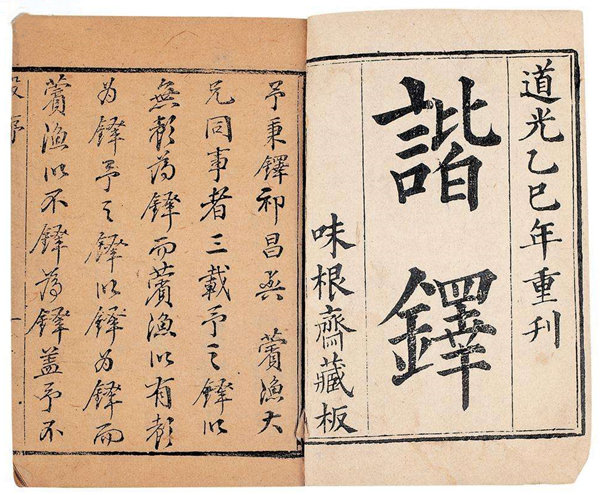 道光乙巳年重刊
諧鐸
味根齋藏板
予秉鐸祁昌與 薲漁大
兄同事者三載予之鐸以
無為鐸而薲漁以有
為鐸予之鐸以鐸為鐸而
薲漁以不鐸為鐸蓋予不
序 一